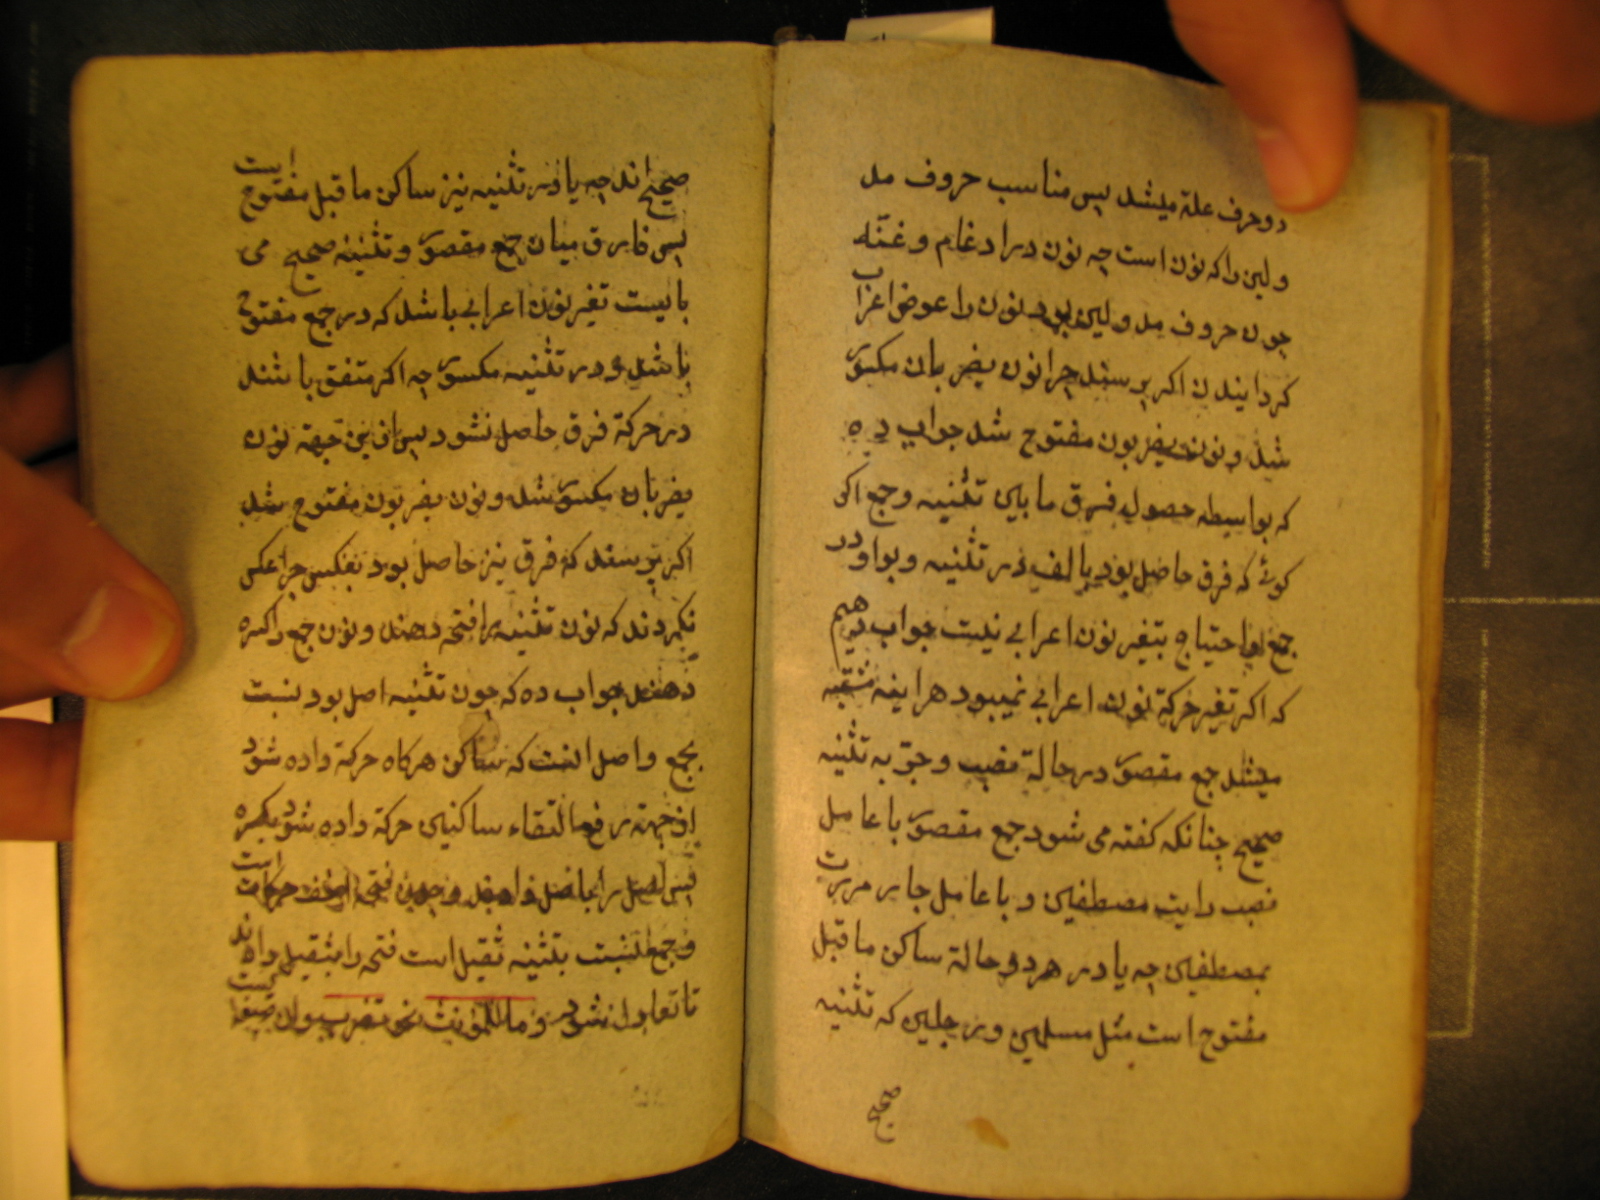 دو حرف علة میشد پس مناسب حروف مد
و لین را که نون است چه نون در ادغام و غنّه
چون حروف مد و لین بود نون را عوض اعراب
کردایندن اکر پرسند چرا نون یضربان مکسور
شد و نون یضربون مفتوح شد جواب ده
که بواسطه حصول فرق مابین تثنیه و جمع اکر
کوئے که فرق حاصل بود بالف در تثنیه و بواو در
جمع احتیاج بتغیر نون اعرابی نیست جواب دهیم
که اکر تغیر حرکة نون اعرابی نمیبود هراینه مشتبه
میشد جمع مقصور در حالة نصب و جر به تثنیه
صحیح چنانکه کفته می شود جمع مقصور با عامل
نصب رایت مصطفین و با عامل جار مررت
بمصطفین چه یا در هر دو حالة ساکن ما قبل
مفتوح است مثل مسلمین و رجلین که تثنیه
صحیح
صحیح اند چه یا در تثنیه نیز ساکن ما قبل مفتوح است
پس فارق میان جمع مقصور و تثنیه صحیح می
بایست تغیر نون اعرابی باشد که در جمع مفتوح
باشد و در تثنیه مکسور چه اکر متفق باشند
در حرکة فرق حاصل نشود پس از ین جهة نون
یضربان مکسور شد و نون یضربون مفتوح شد
اکر پرسند که فرق نیز حاصل بود بعکس چرا عکس
نکردند که نون تثنیه را فتحه دهند و نون جمع را کسره
دهند جواب ده که چون تثنیه اصل بود نسبت
بجمع و اصل انست که ساکن هرکاه حرکة داده شود
از جهة رفع التقاء ساکنین حرکة داده شود بکسره
پس اصل را باصل دادند و چون فتحه اخف حرکات است
و جمع نسبت بتثنیه ثقیل است فتحه را بثقیل دادند
تا تعادل شود و ما للمؤنث نحو تضرب بدان